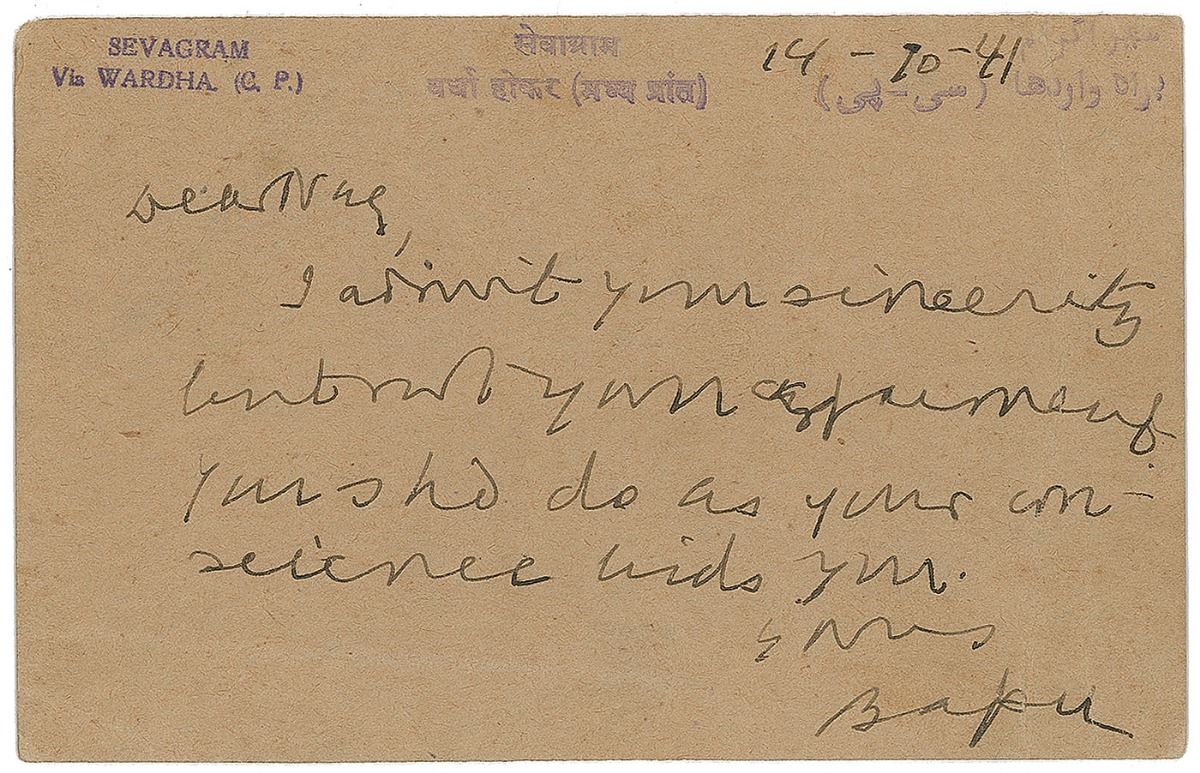 SEVAGRAM
Via WARDHA. (C. P.)
सेवाग्राम
वर्धा होकर (मध्य प्रांत)
14 - 10 - 41
براہ واردھا (سی - پی)
Dear Nag,
I admit your sincerity
but not your
You shd do as your con-
science bids you.
yours
Bapu